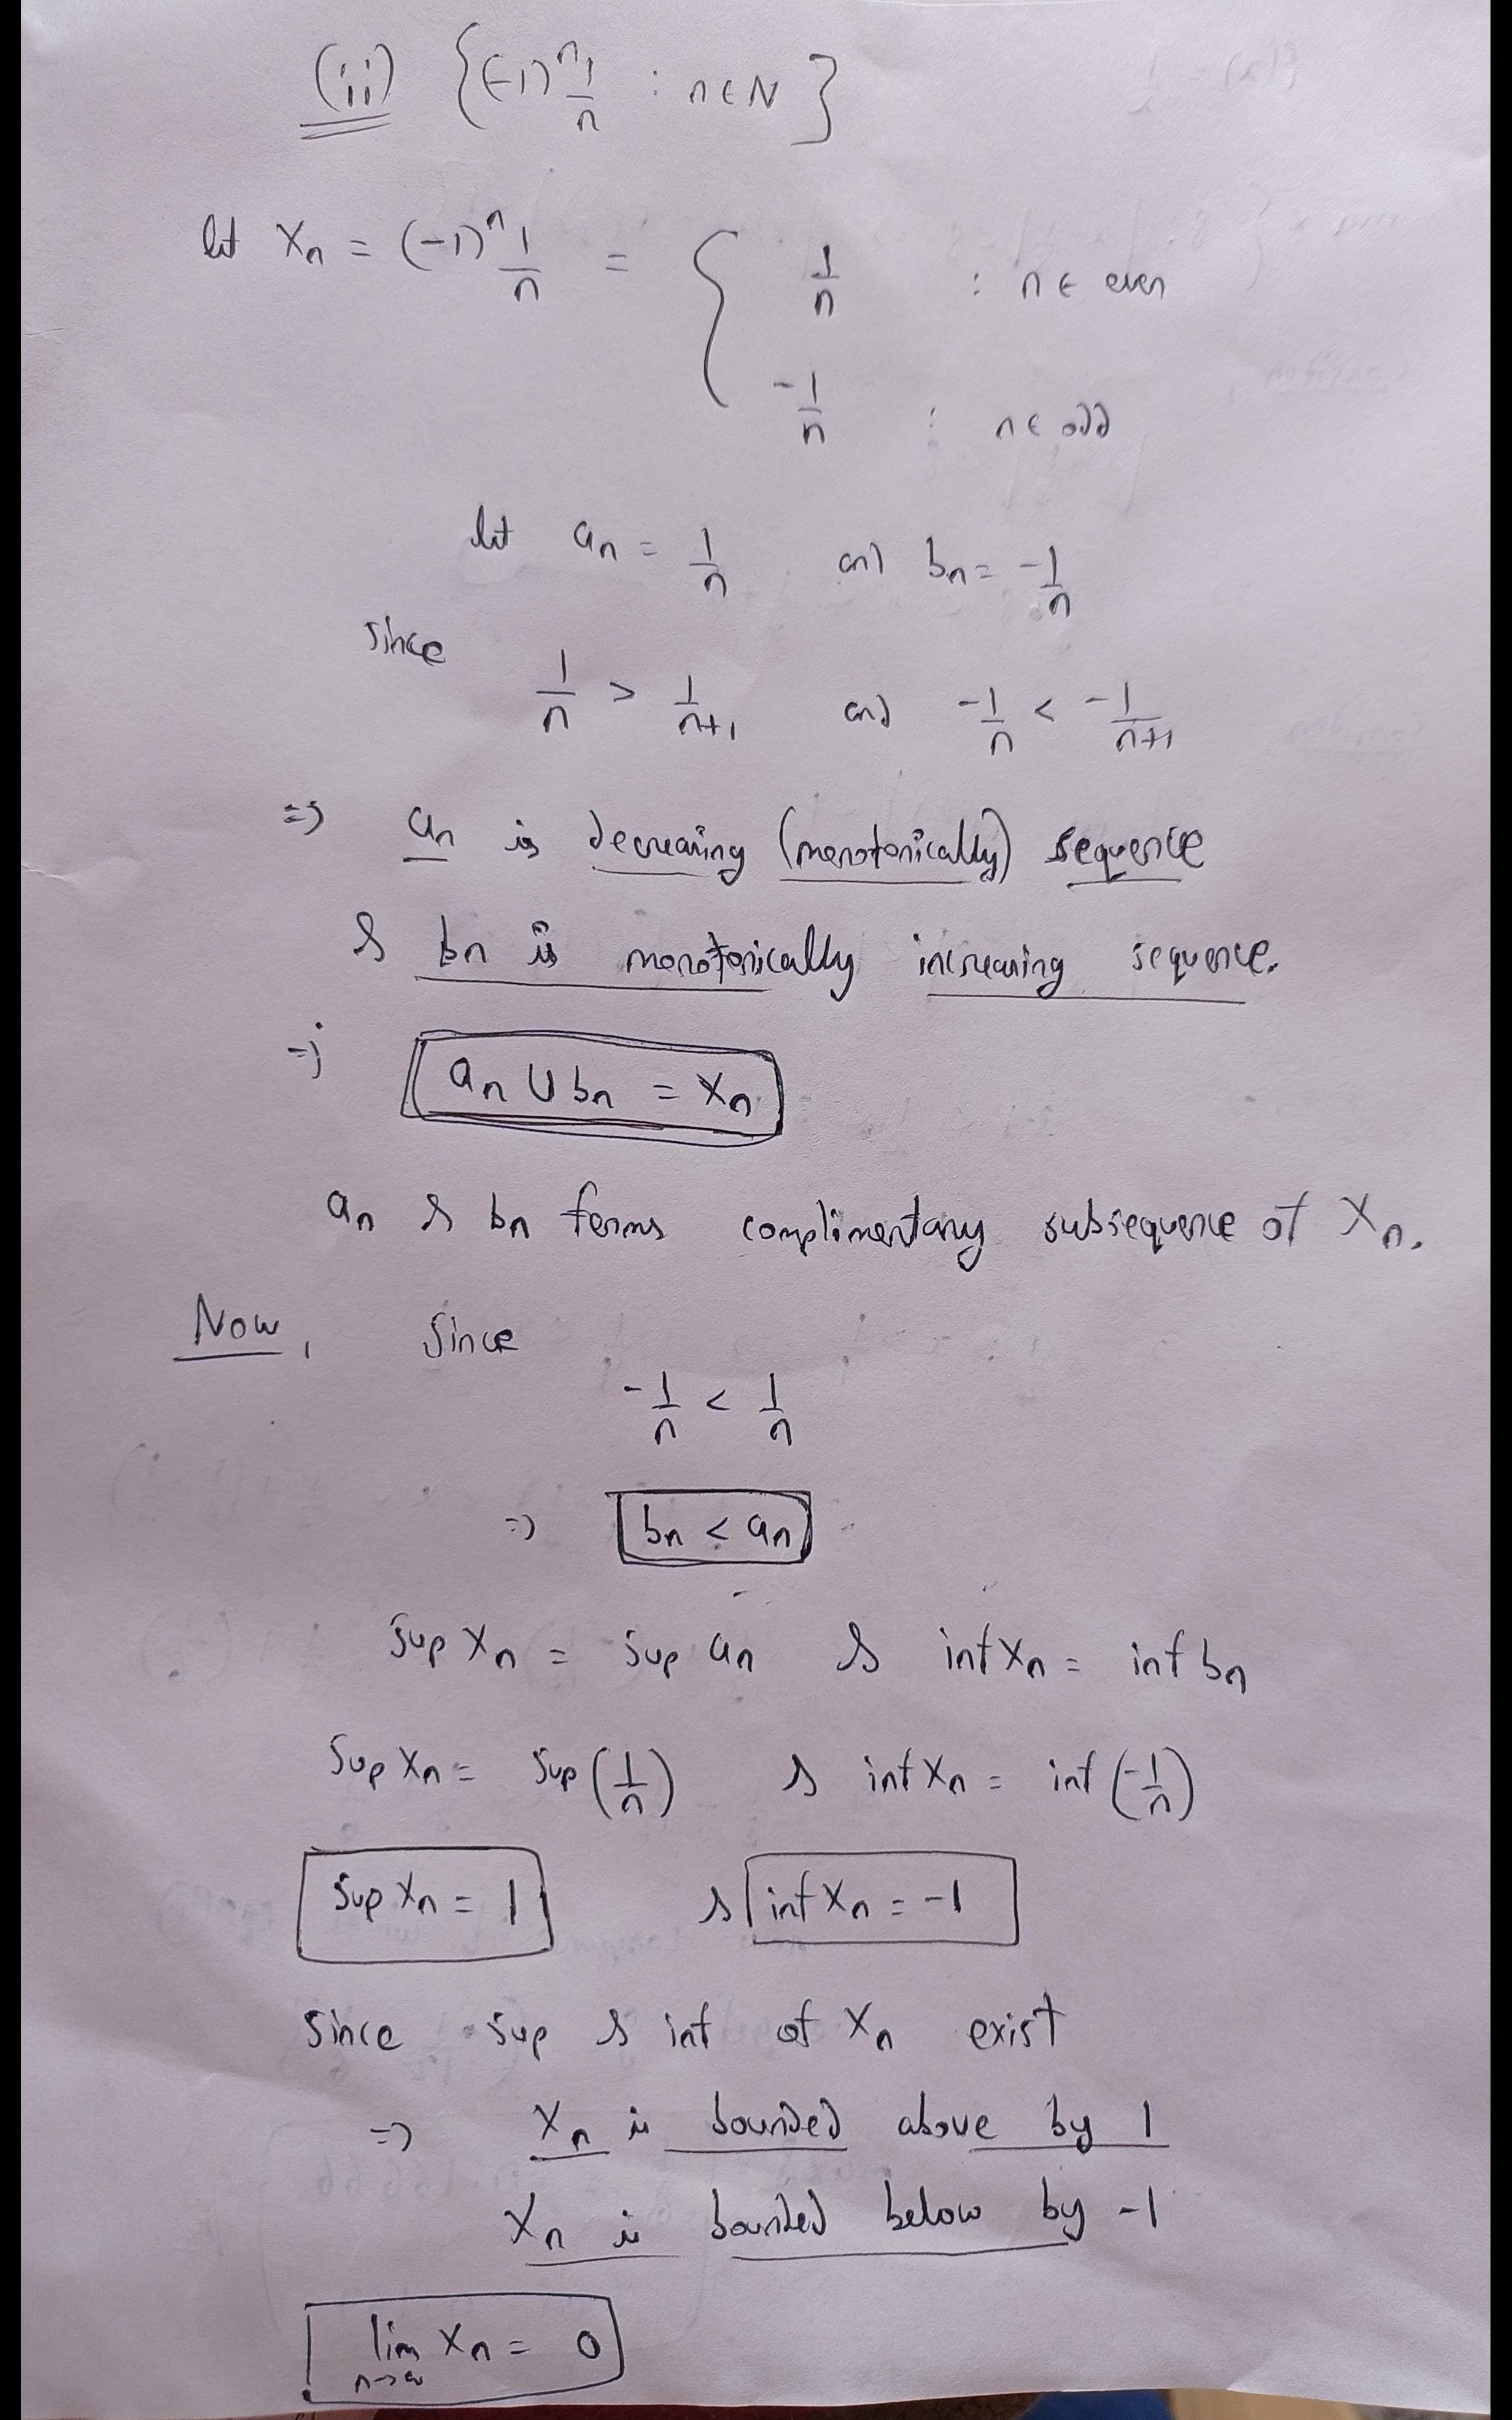 (ii) {(-1)^n 1/n : n ∈ N}
let Xn = (-1)^n 1/n = { 1/n : n ∈ even
-1/n : n ∈ odd
let an = 1/n and bn = -1/n
since
1/n > 1/n+1 and -1/n < -1/n+1
=> an is decreasing (monotonically) sequence
& bn is monotonically increasing sequence.
=> an U bn = Xn
an & bn forms complimentary subsequence of Xn.
Now, Since
-1/n < 1/n
=> bn < an
Sup Xn = Sup an & inf Xn = inf bn
Sup Xn = Sup (1/n) & inf Xn = inf (-1/n)
Sup Xn = 1 & inf Xn = -1
Since sup & inf of Xn exist
=> Xn is bounded above by 1
Xn is bounded below by -1
lim n->∞ Xn = 0